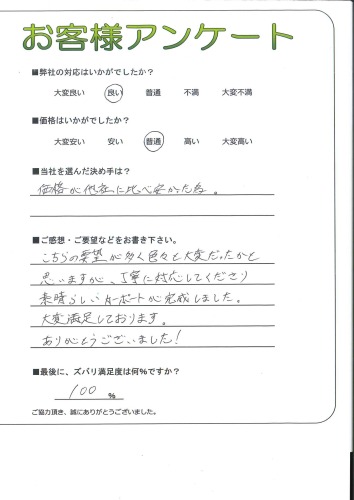 お客様アンケート
■弊社の対応はいかがでしたか？
大変良い 良い 普通 不満 大変不満
■価格はいかがでしたか？
大変安い 安い 普通 高い 大変高い
■当社を選んだ決め手は？
価格が他社に比べ安かった為。
■ご感想・ご要望などをお書き下さい。
こちらの要望が多く色々と大変だったかと
思いますが、丁寧に対応してくださり
素晴らしいカーポートが完成しました。
大変満足しております。
ありがとうございました！
■最後に、ズバリ満足度は何％ですか？
100 ％
ご協力頂き、誠にありがとうございました。